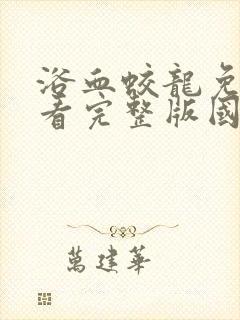 浴血蛟龍免
看完整版國
萬建華